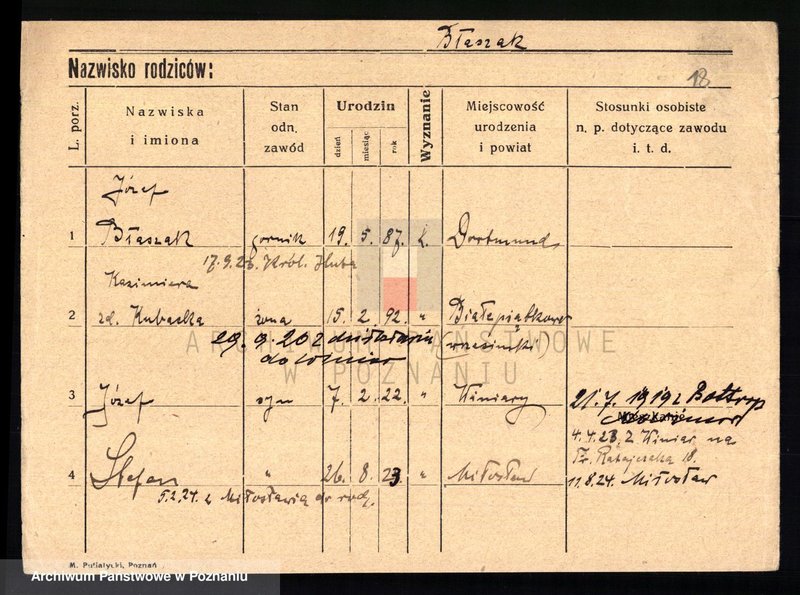 Błaszak
Nazwisko rodziców:
18
L. porz.
Nazwiska i imiona
Stan odn. zawód
Urodzin
dzień
miesiąc
rok
Wyznanie
Miejscowość urodzenia i powiat
Stosunki osobiste n. p. dotyczące zawodu i. t. d.
Józef
1 Błaszak górnik 19. 5. 87. k. Dortmund
17.9.23. Król. Huta
Kazimiera
2 zd. Kubacka żona 15. 2 92. " Białepiątkowo
29. 9. 20 z
do
ARCHIWUM PAŃSTWOWE
W POZNANIU
3 Józef syn 7. 2. 22. " Winiary 21. 7. 1919 z Bottrop
Mieszkanie
4.4.23, z Winiar na
Fr. Ratajczaka 18.
4 Stefan " 26. 8. 23 " Miłosław 11.8.24. Miłosław
5.2.24. z Miłosławia do rodz.
M. Putiatycki, Poznań
Archiwum Państwowe w Poznaniu